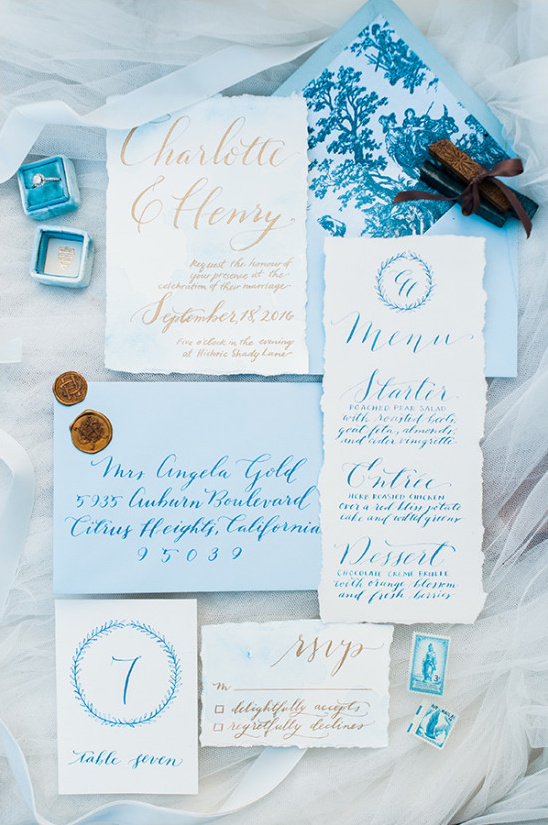 Charlotte
& Henry
Request the honour of
your presence at the
celebration of their marriage
September, 18, 2016
Five o'clock in the evening
at Historic Shady Lane
Menu
Starter
POACHED PEAR SALAD
with roasted beets,
goat feta, almonds,
and cider vinegrette
Entrée
HERB ROASTED CHICKEN
over a red bliss potato
cake and wilted greens
Dessert
CHOCOLATE CREME BRULEE
with orange blossom
and fresh berries
Mrs Angela Gold
5935 Auburn Boulevard
Citrus Heights, California
95039
7
table seven
rsvp
M
delightfully accepts
regretfully declines
3¢